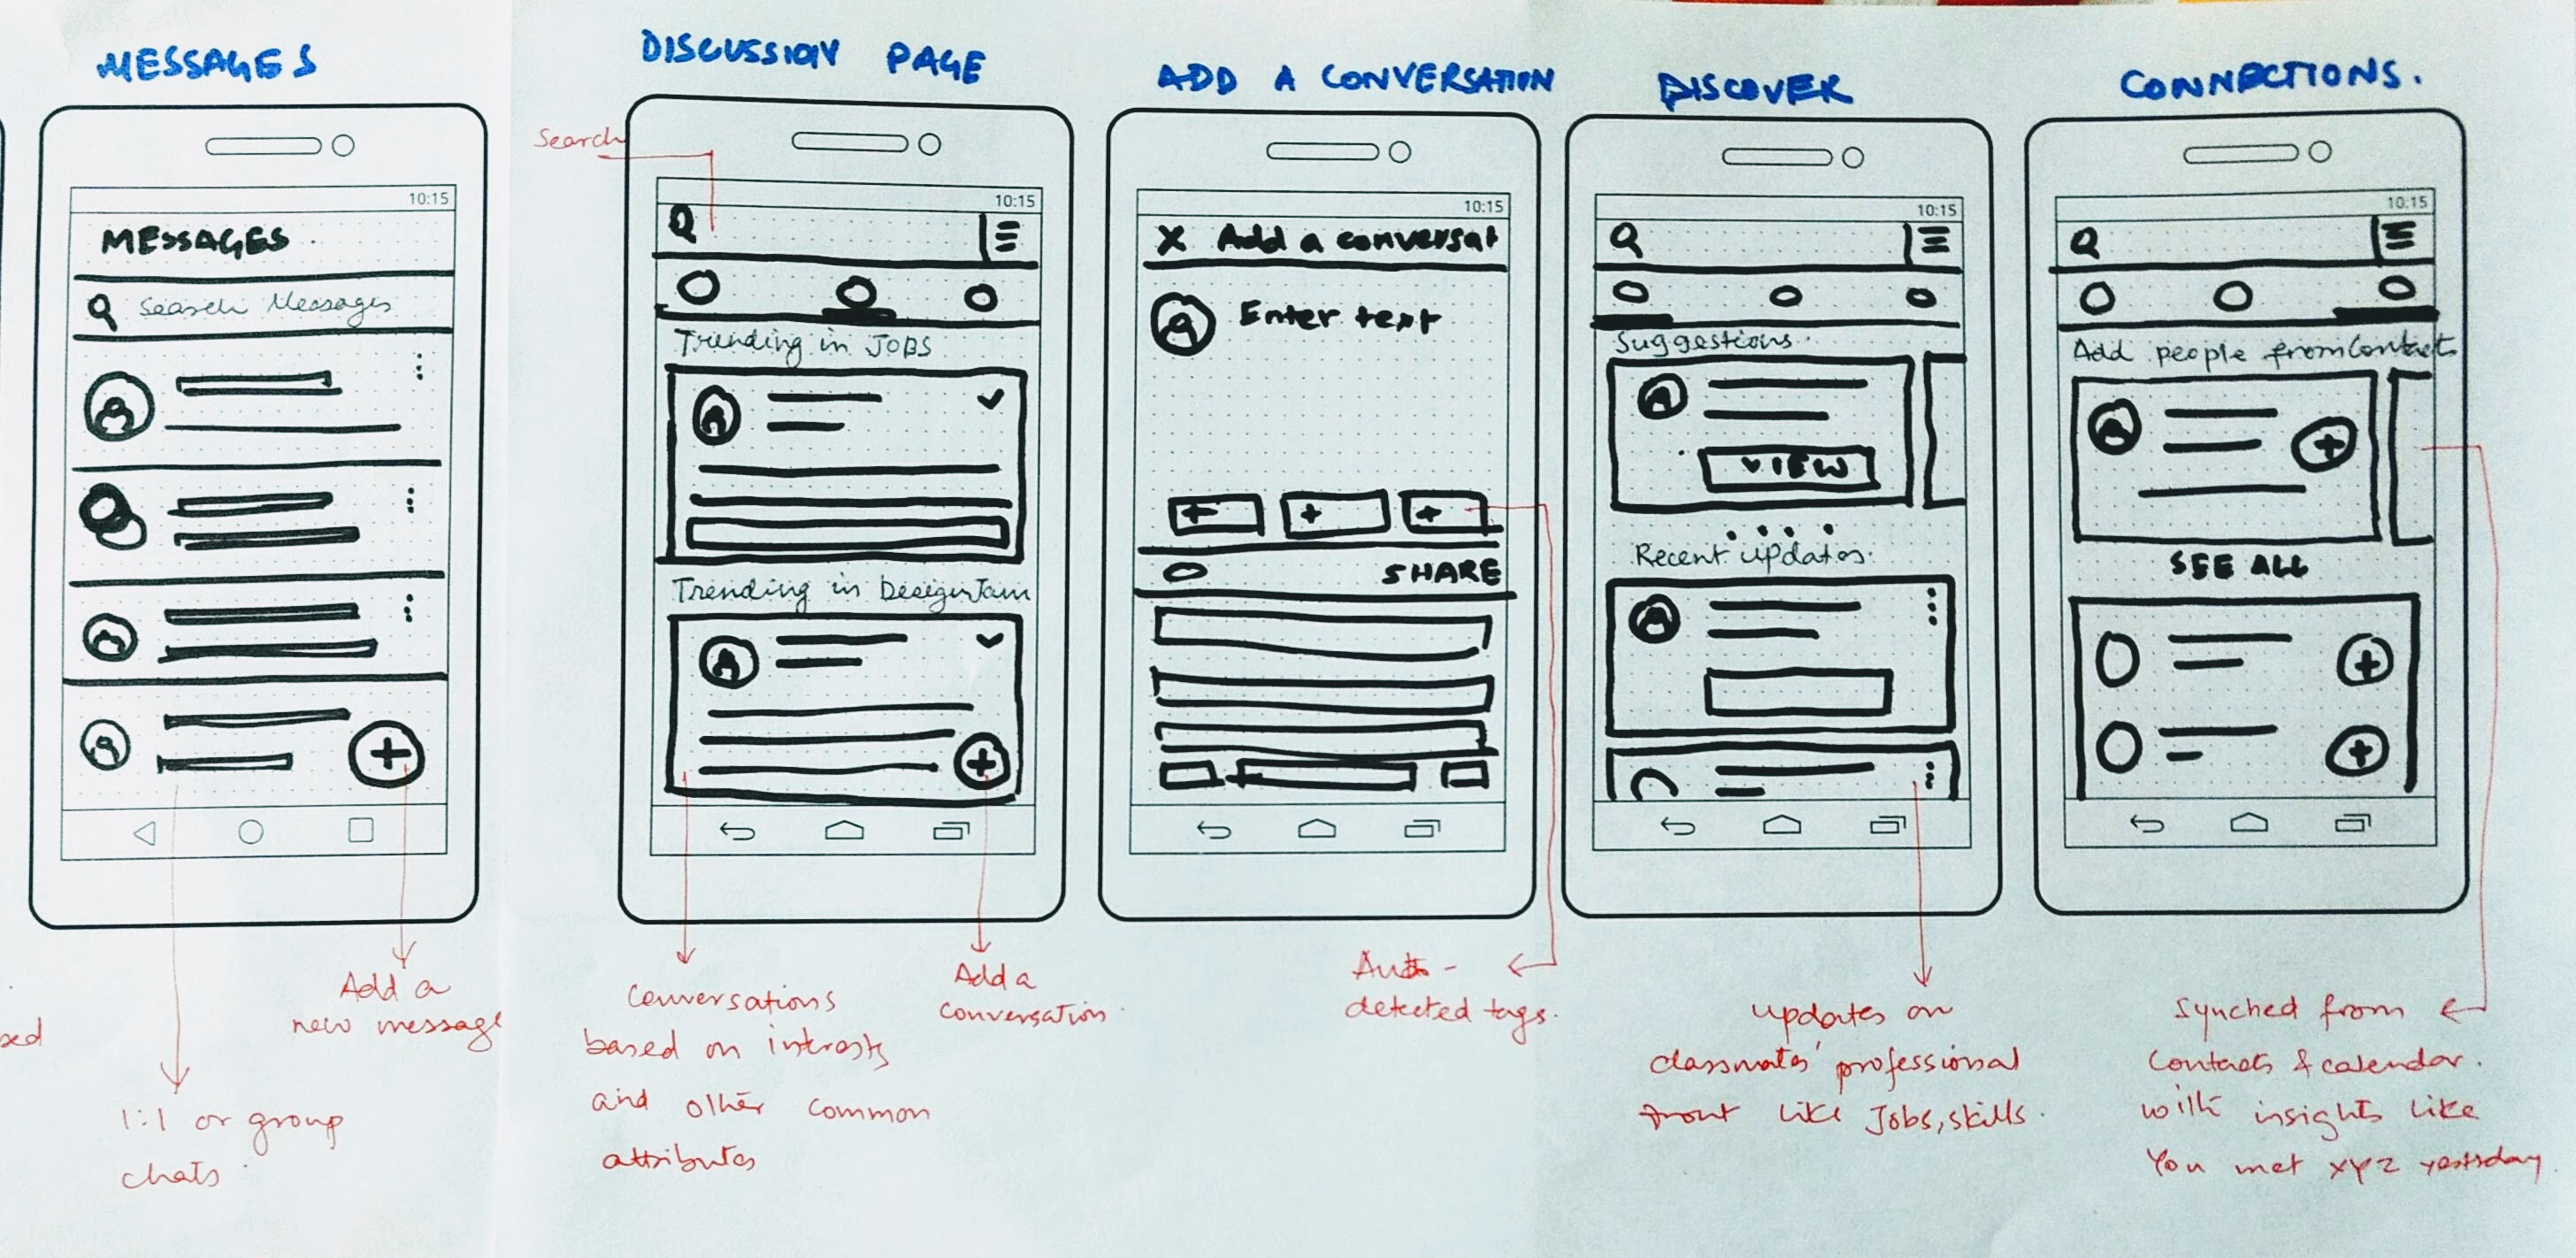 MESSAGES
10:15
MESSAGES
Search Messages
Add a
new message
1:1 or group
chats
sed
DISCUSSION PAGE
Search
10:15
Trending in JOBS
Trending in DesignJam
Conversations
based on interests
and other common
attributes
Add a
conversation.
ADD A CONVERSATION
10:15
X Add a conversat
Enter text
+ + +
SHARE
Auto-
detected tags.
DISCOVER
10:15
Suggestions
VIEW
Recent updates.
updates on
classmates' professional
front like Jobs, skills.
CONNECTIONS.
10:15
Add people from Contacts
SEE ALL
Synched from
Contacts & calendar.
with insights like
You met XYZ yesterday.